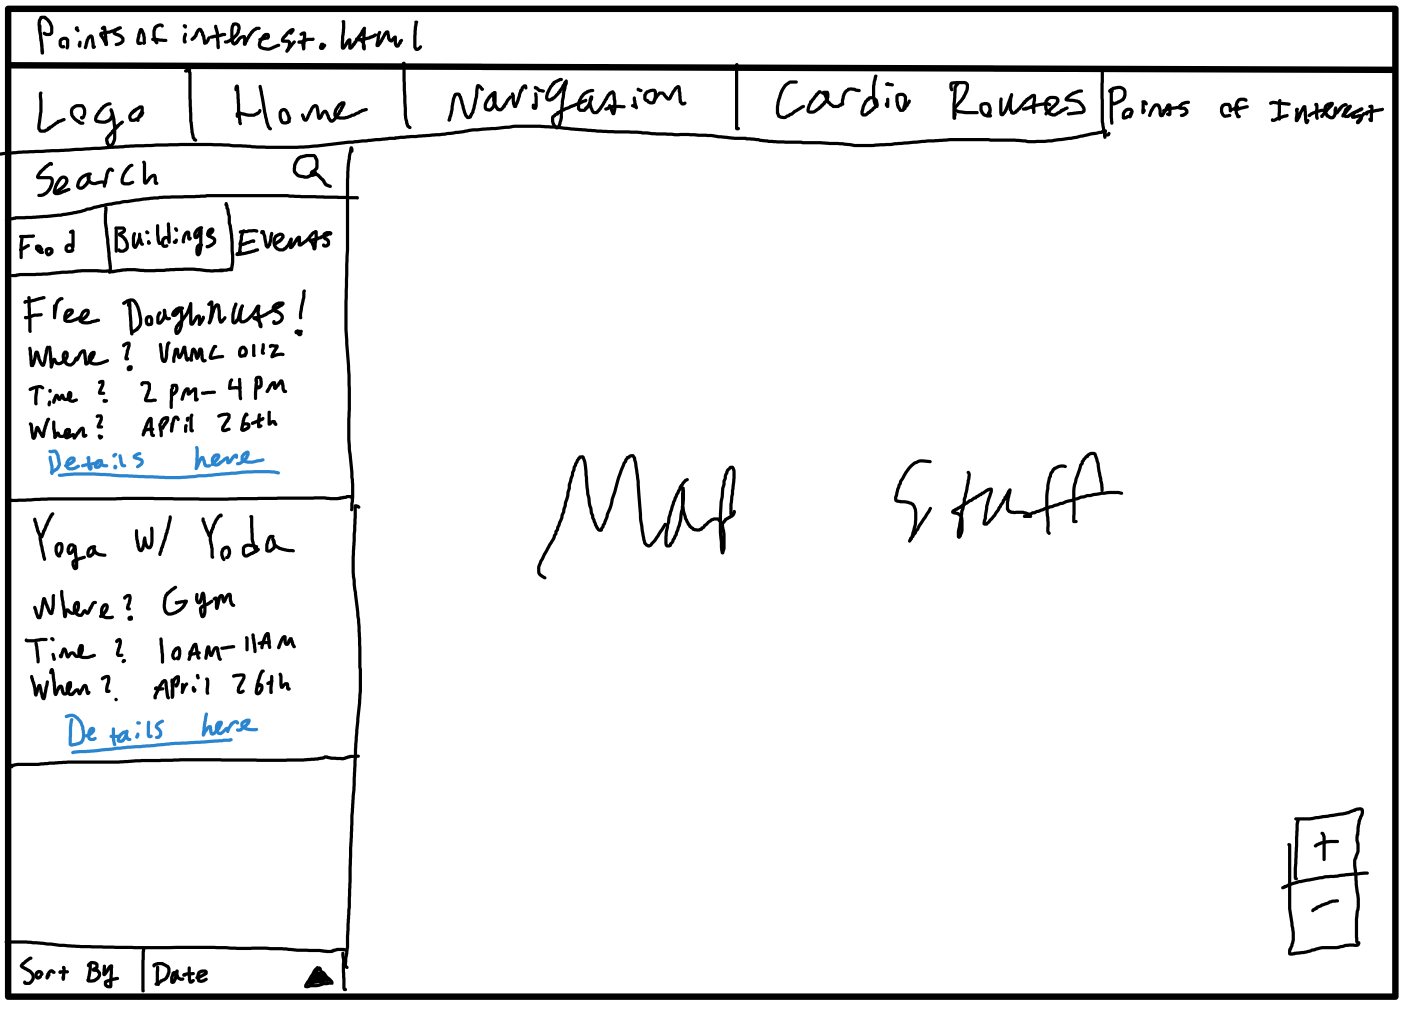 Points of interest.html
Logo Home Navigation Cardio Routes Points of Interest
Search
Food Buildings Events
Free Doughnuts!
Where? VMMC 0112
Time? 2 PM - 4 PM
When? April 26th
Details here
Yoga w/ Yoda
Where? Gym
Time? 10AM - 11AM
When? April 26th
Details here
Map Stuff
+
-
Sort By Date